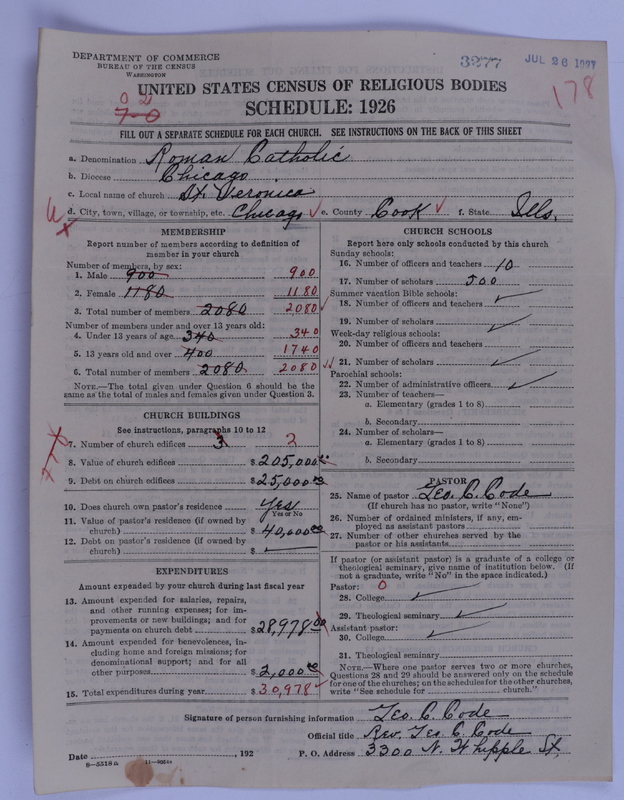 DEPARTMENT OF COMMERCE
BUREAU OF THE CENSUS
WASHINGTON
3277
JUL 26 1927
178
UNITED STATES CENSUS OF RELIGIOUS BODIES
SCHEDULE: 1926
0 2
7-0
FILL OUT A SEPARATE SCHEDULE FOR EACH CHURCH. SEE INSTRUCTIONS ON THE BACK OF THIS SHEET
a. Denomination Roman Catholic
b. Diocese Chicago
c. Local name of church St. Veronica
d. City, town, village, or township, etc. Chicago e. County Cook f. State Ills.
MEMBERSHIP
Report number of members according to definition of
member in your church
Number of members, by sex:
1. Male 900 900
2. Female 1180 1180
3. Total number of members 2080 2080
Number of members under and over 13 years old:
4. Under 13 years of age 340 340
5. 13 years old and over 400 1740
6. Total number of members 2080 2080
NOTE.—The total given under Question 6 should be the
same as the total of males and females given under Question 3.
CHURCH BUILDINGS
See instructions, paragraphs 10 to 12
7. Number of church edifices 3
8. Value of church edifices $205,000.00
9. Debt on church edifices $25,000.00
10. Does church own pastor's residence? Yes
Yes or No
11. Value of pastor's residence (if owned by
church) $40,000.00
12. Debt on pastor's residence (if owned by
church) $
EXPENDITURES
Amount expended by your church during last fiscal year
13. Amount expended for salaries, repairs,
and other running expenses; for im-
provements or new buildings; and for
payments on church debt $28,978.00
14. Amount expended for benevolences, in-
cluding home and foreign missions; for
denominational support; and for all
other purposes $2,000.00
15. Total expenditures during year $30,978
CHURCH SCHOOLS
Report here only schools conducted by this church
Sunday schools:
16. Number of officers and teachers 10
17. Number of scholars 500
Summer vacation Bible schools:
18. Number of officers and teachers
19. Number of scholars
Week-day religious schools:
20. Number of officers and teachers
21. Number of scholars
Parochial schools:
22. Number of administrative officers
23. Number of teachers—
a. Elementary (grades 1 to 8)
b. Secondary
24. Number of scholars—
a. Elementary (grades 1 to 8)
b. Secondary
PASTOR
25. Name of pastor Geo. C. Code
(If church has no pastor, write "None")
26. Number of ordained ministers, if any, em-
ployed as assistant pastors
27. Number of other churches served by the
pastor or his assistants
If pastor (or assistant pastor) is a graduate of a college or
theological seminary, give name of institution below. (If
not a graduate, write "No" in the space indicated.)
Pastor: 0
28. College
29. Theological seminary
Assistant pastor:
30. College
31. Theological seminary
NOTE.—Where one pastor serves two or more churches,
Questions 28 and 29 should be answered only on the schedule
for one of the churches; on the schedules for the other churches,
write "See schedule for church."
Signature of person furnishing information Geo. C. Code
Official title Rev. Geo. C. Code
Date , 192 P. O. Address 3300 N. Whipple St.
8-5518a